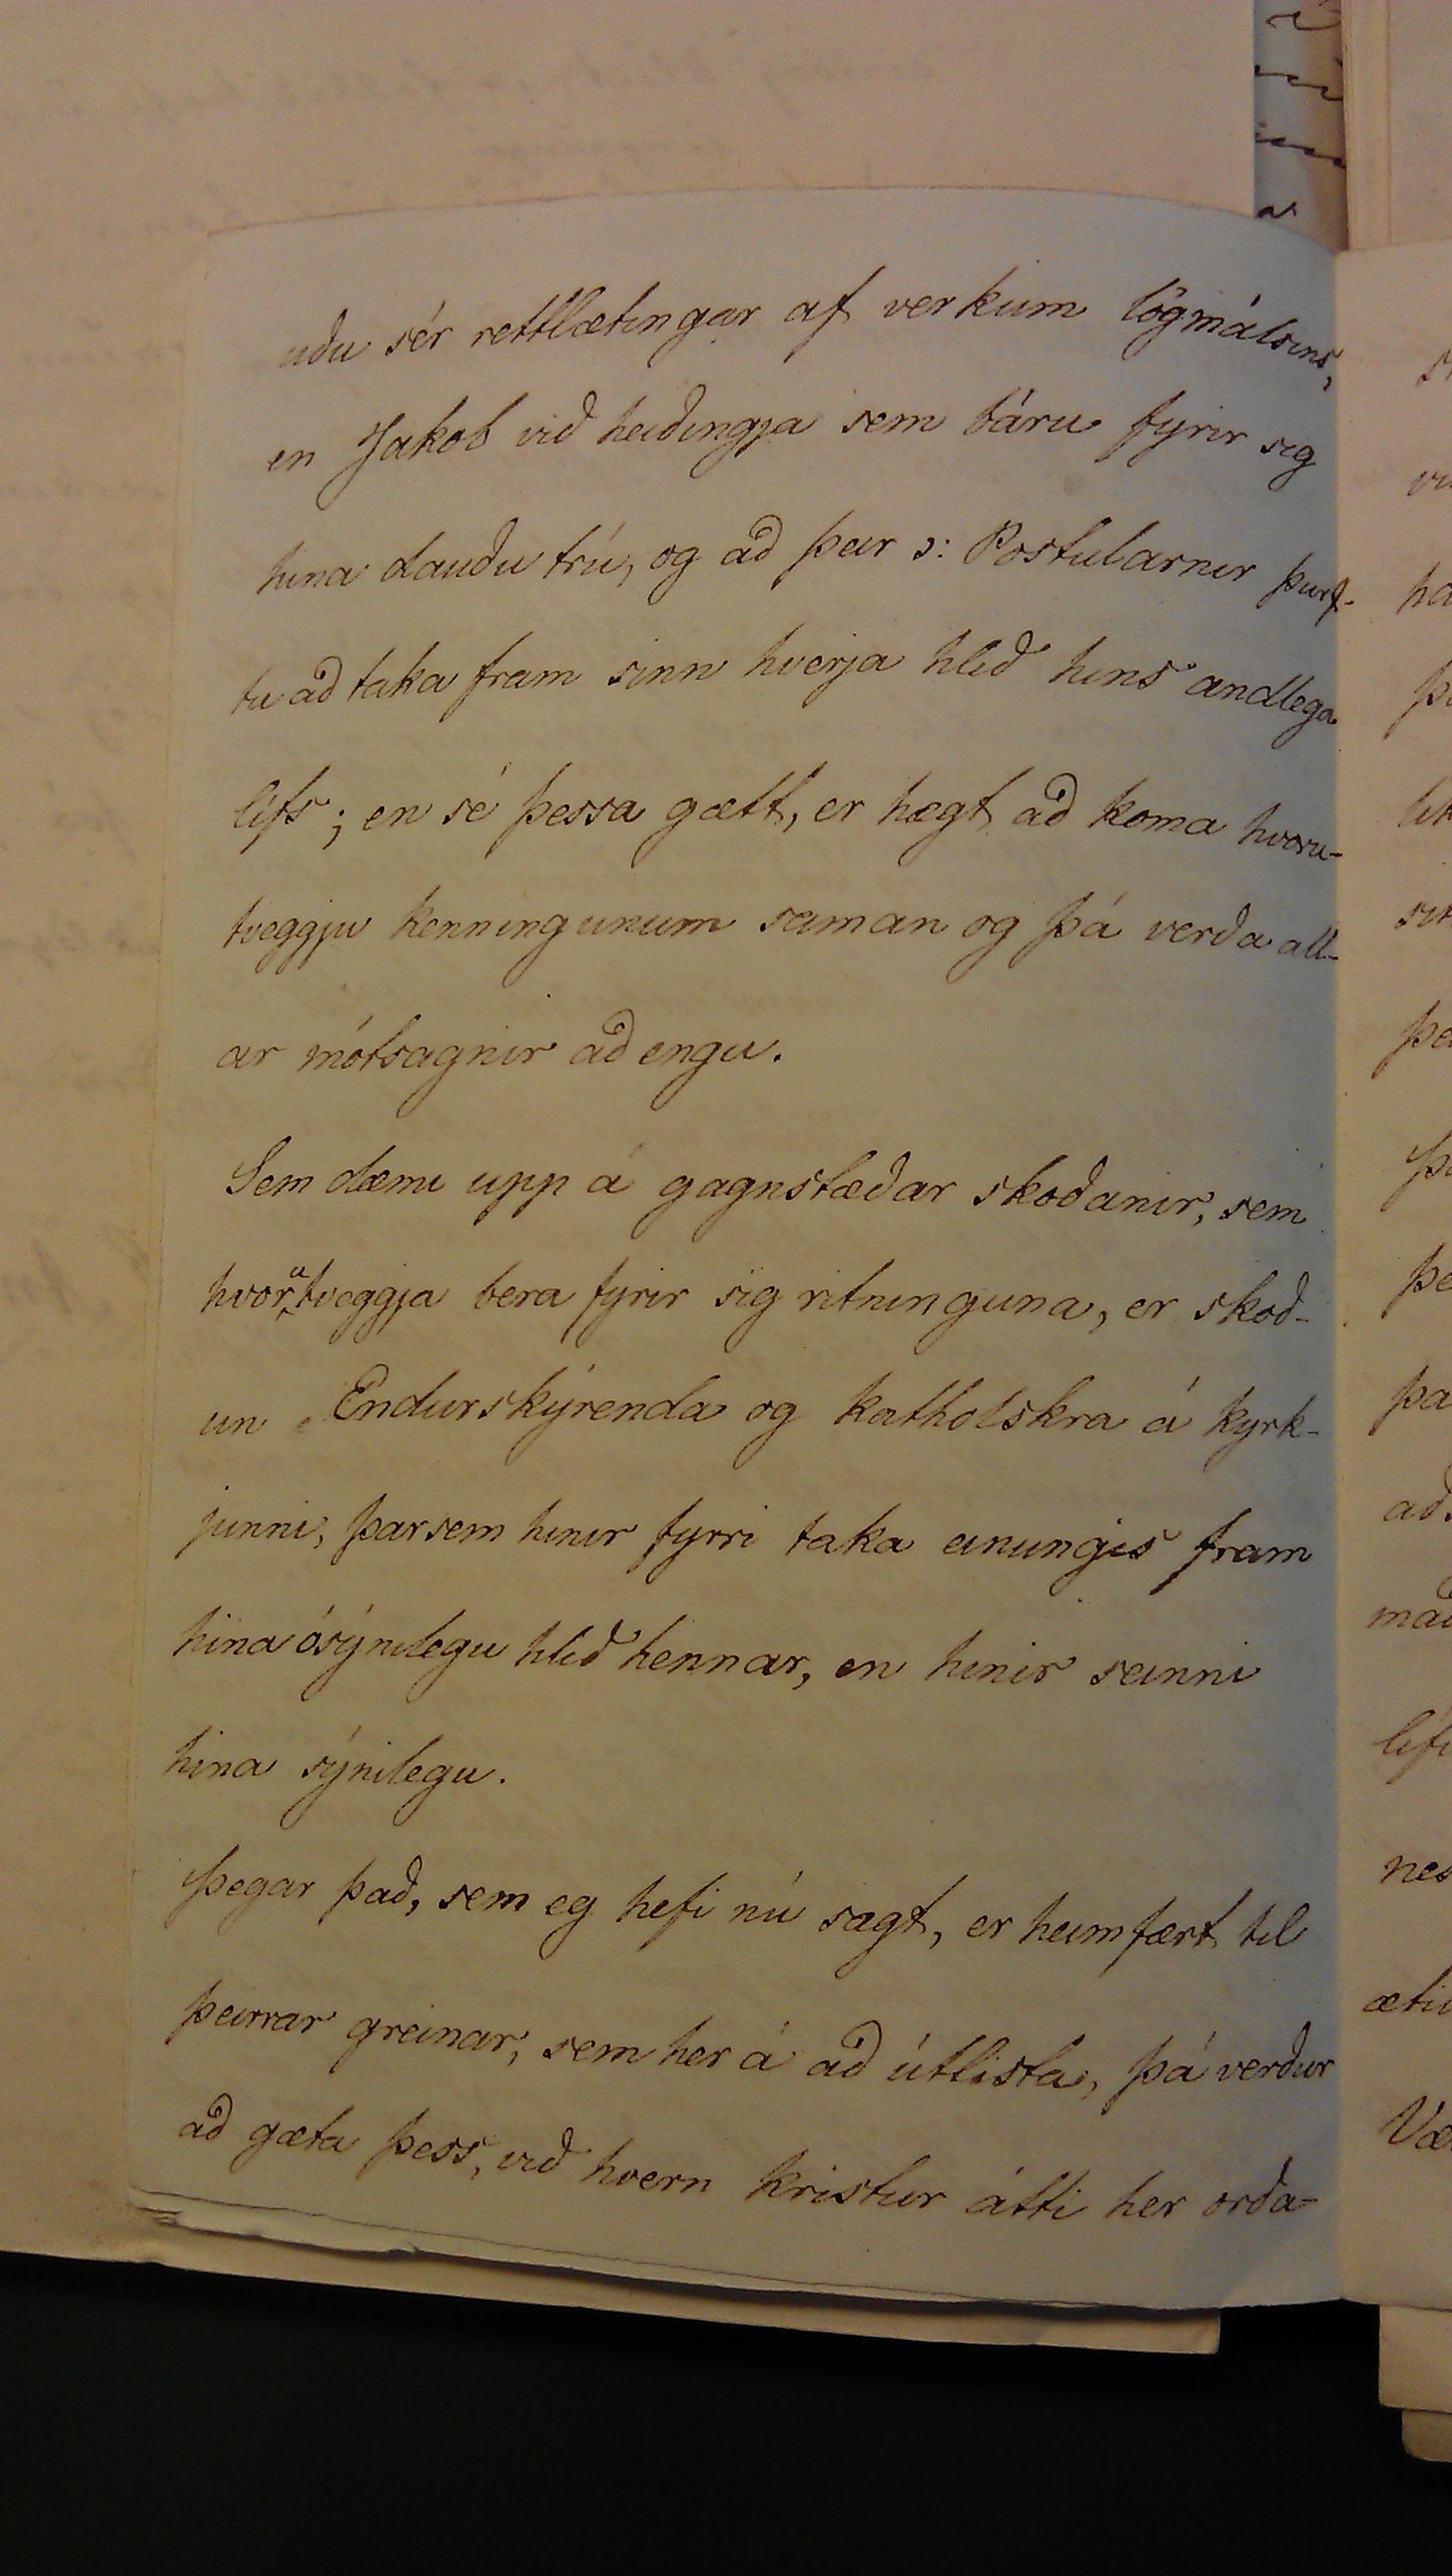 uðu sér rettlætingar af verkum lögmálsins,
en Jakob við heiðingja sem báru fyrir sig
hina dauðu trú, og að þeir ɔ: Postularnir þurf-
tu að taka fram sinn hverja hlið hins andlega
lífs; en sé þessa gætt, er hægt að koma hvoru-
tveggju kenningunum saman og þá verða all-
ar mótsagnir að engu.
Sem dæmi upp á gagnstæðar skoðanir, sem
hvorutveggja bera fyrir sig ritninguna, er skoð-
un Endurskýrenda og katholskra á kyrk-
junni, þarsem hinir fyrri taka einungis fram
hina ósýnilegu hlið hennar, en hinir seinni
hina sýnilegu.
Þegar það, sem eg hefi nú sagt, er heimfært til
þeirrar greinar, sem her á að útlista, þá verður
að gæta þess, við hvern kristur átti her orða-